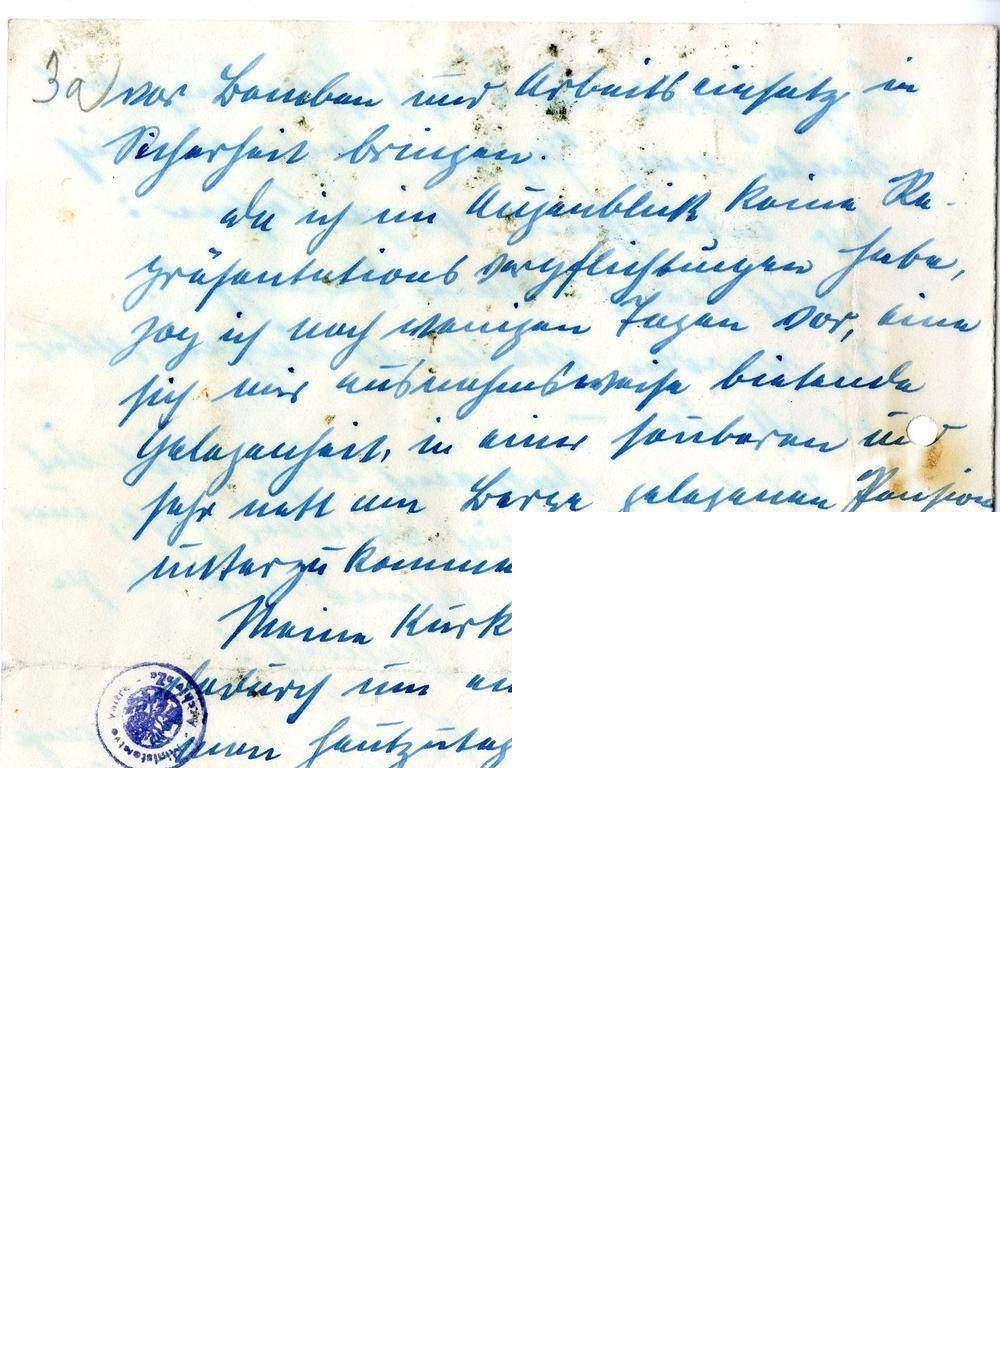 3a) vor Bomben und Arbeitseinsatz in
Sicherheit bringen.
Da ich im Augenblick keine Re-
präsentationsverpflichtungen habe,
zog ich nach wenigen Tagen vor, eine
sich mir ausnahmsweise bietende
Gelegenheit, in einer sauberen und
sehr nett am Berge gelegenen Pension
unterzukomme
Meine Kurk
dadurch um
man heutzutag